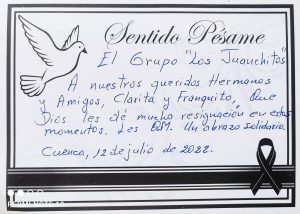 Sentido Pésame
El Grupo "Los Juanchitos"
A nuestros queridos Hermanos
y Amigos, Clarita y Franquito, Que
Dios les dé mucha resignación en estos
momentos. Les QM. Un abrazo solidario.
Cuenca, 12 de julio de 2022.